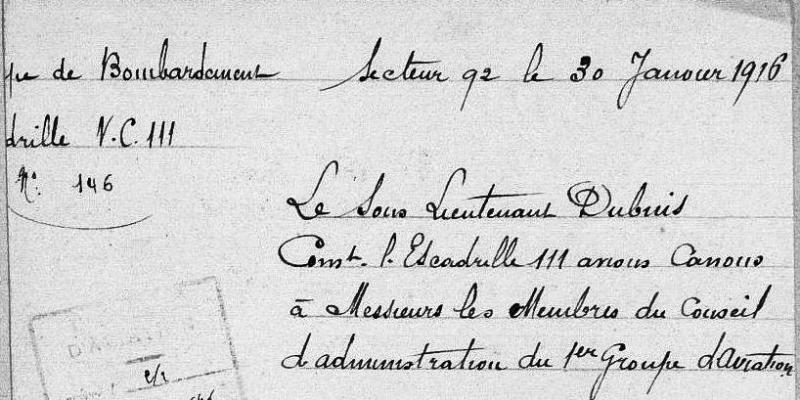 pe de Bombardement Secteur 92 le 30 Janvier 1916
drille V.C. 111
N° 146
Le Sous Lieutenant Dubuis
Comt. l'Escadrille 111 avions Canons
à Messieurs les Membres du Conseil
d'administration du 1er Groupe d'Aviation
D'AVIATION